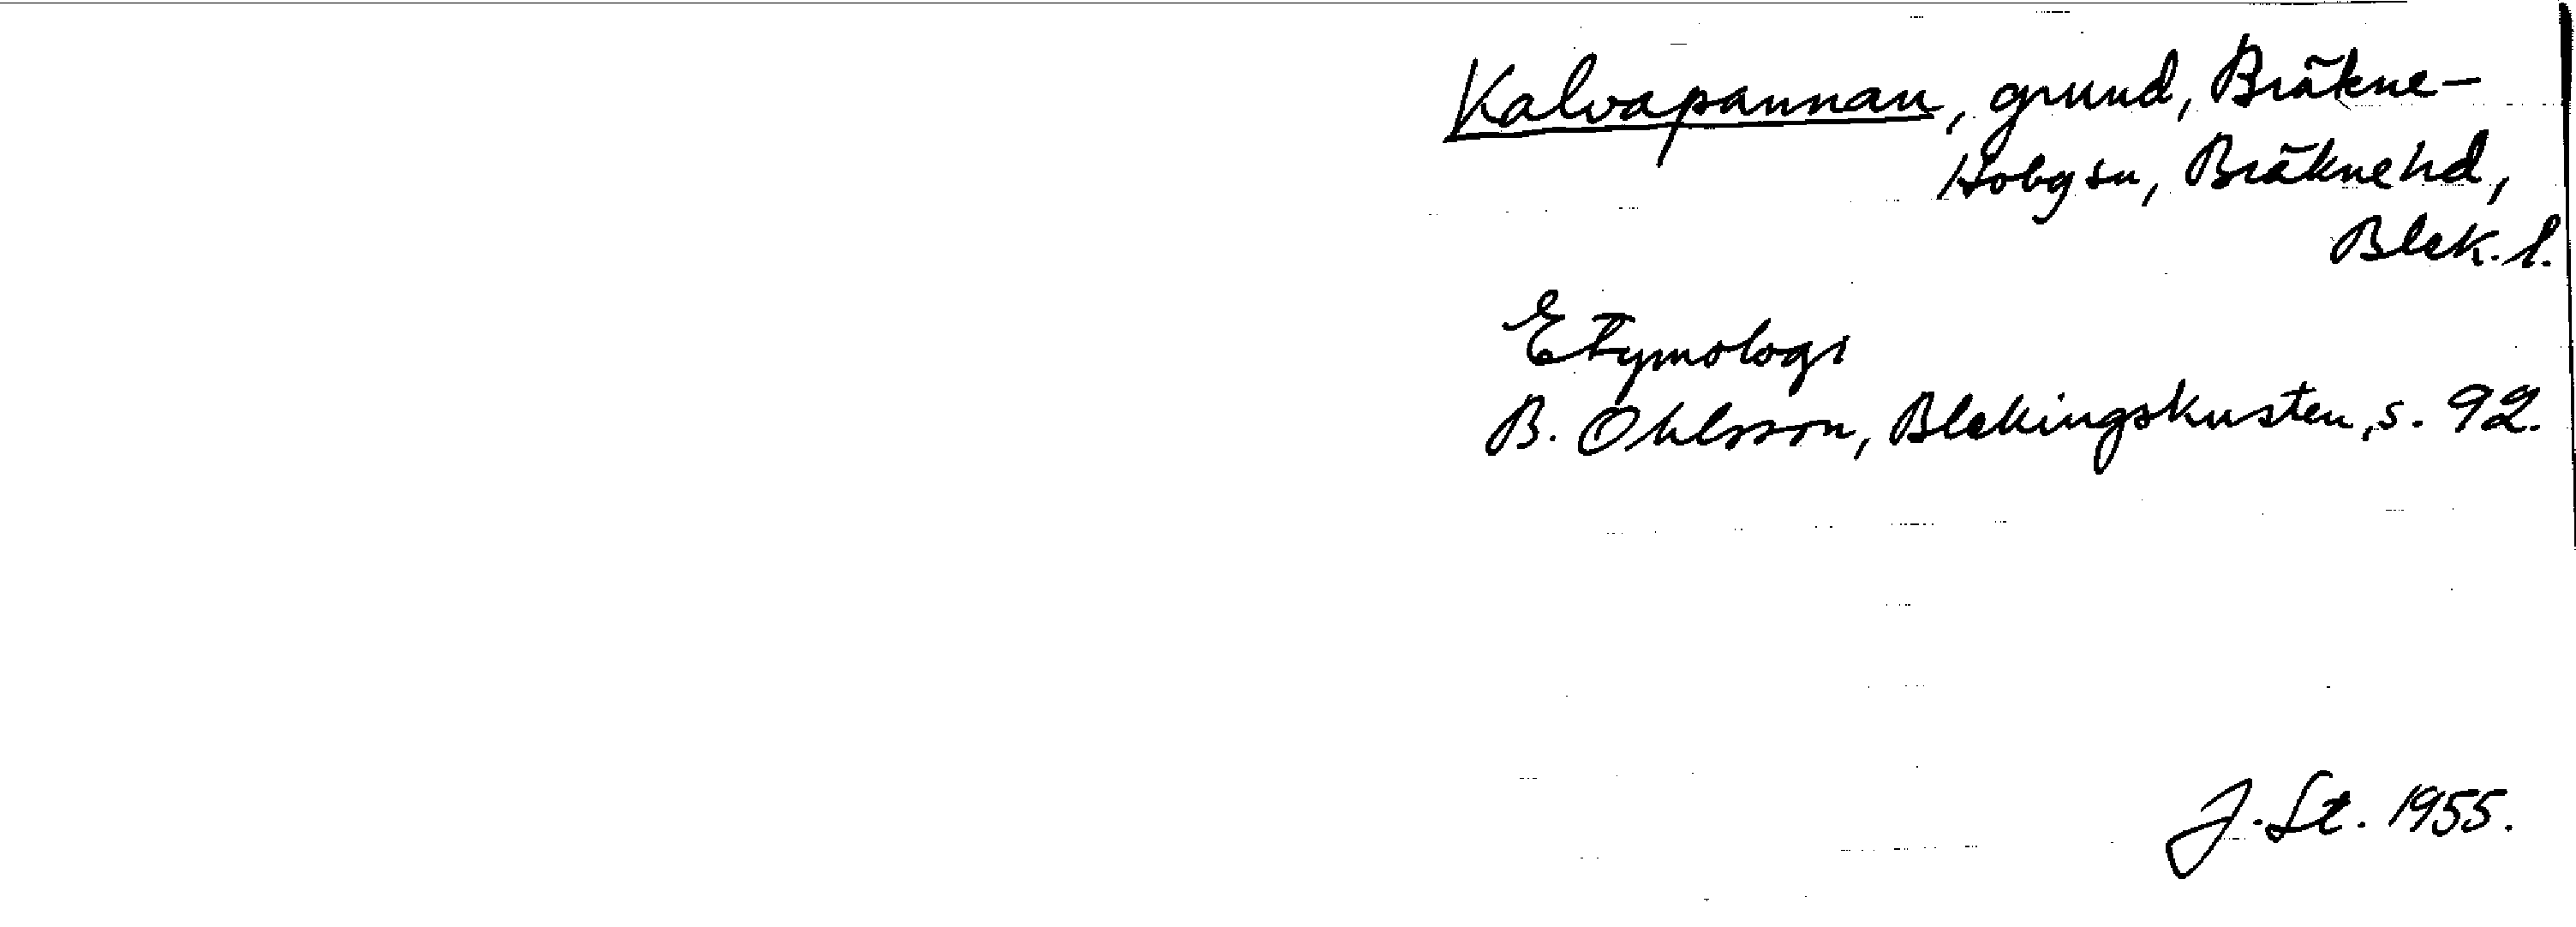 Kalvapannan, grund, Bräkne-
Hobygsn, Bräknehd,
Blek. l.
Etymologi
B. Ohlsson, Blekingskusten, s. 92.
J. St. 1955.